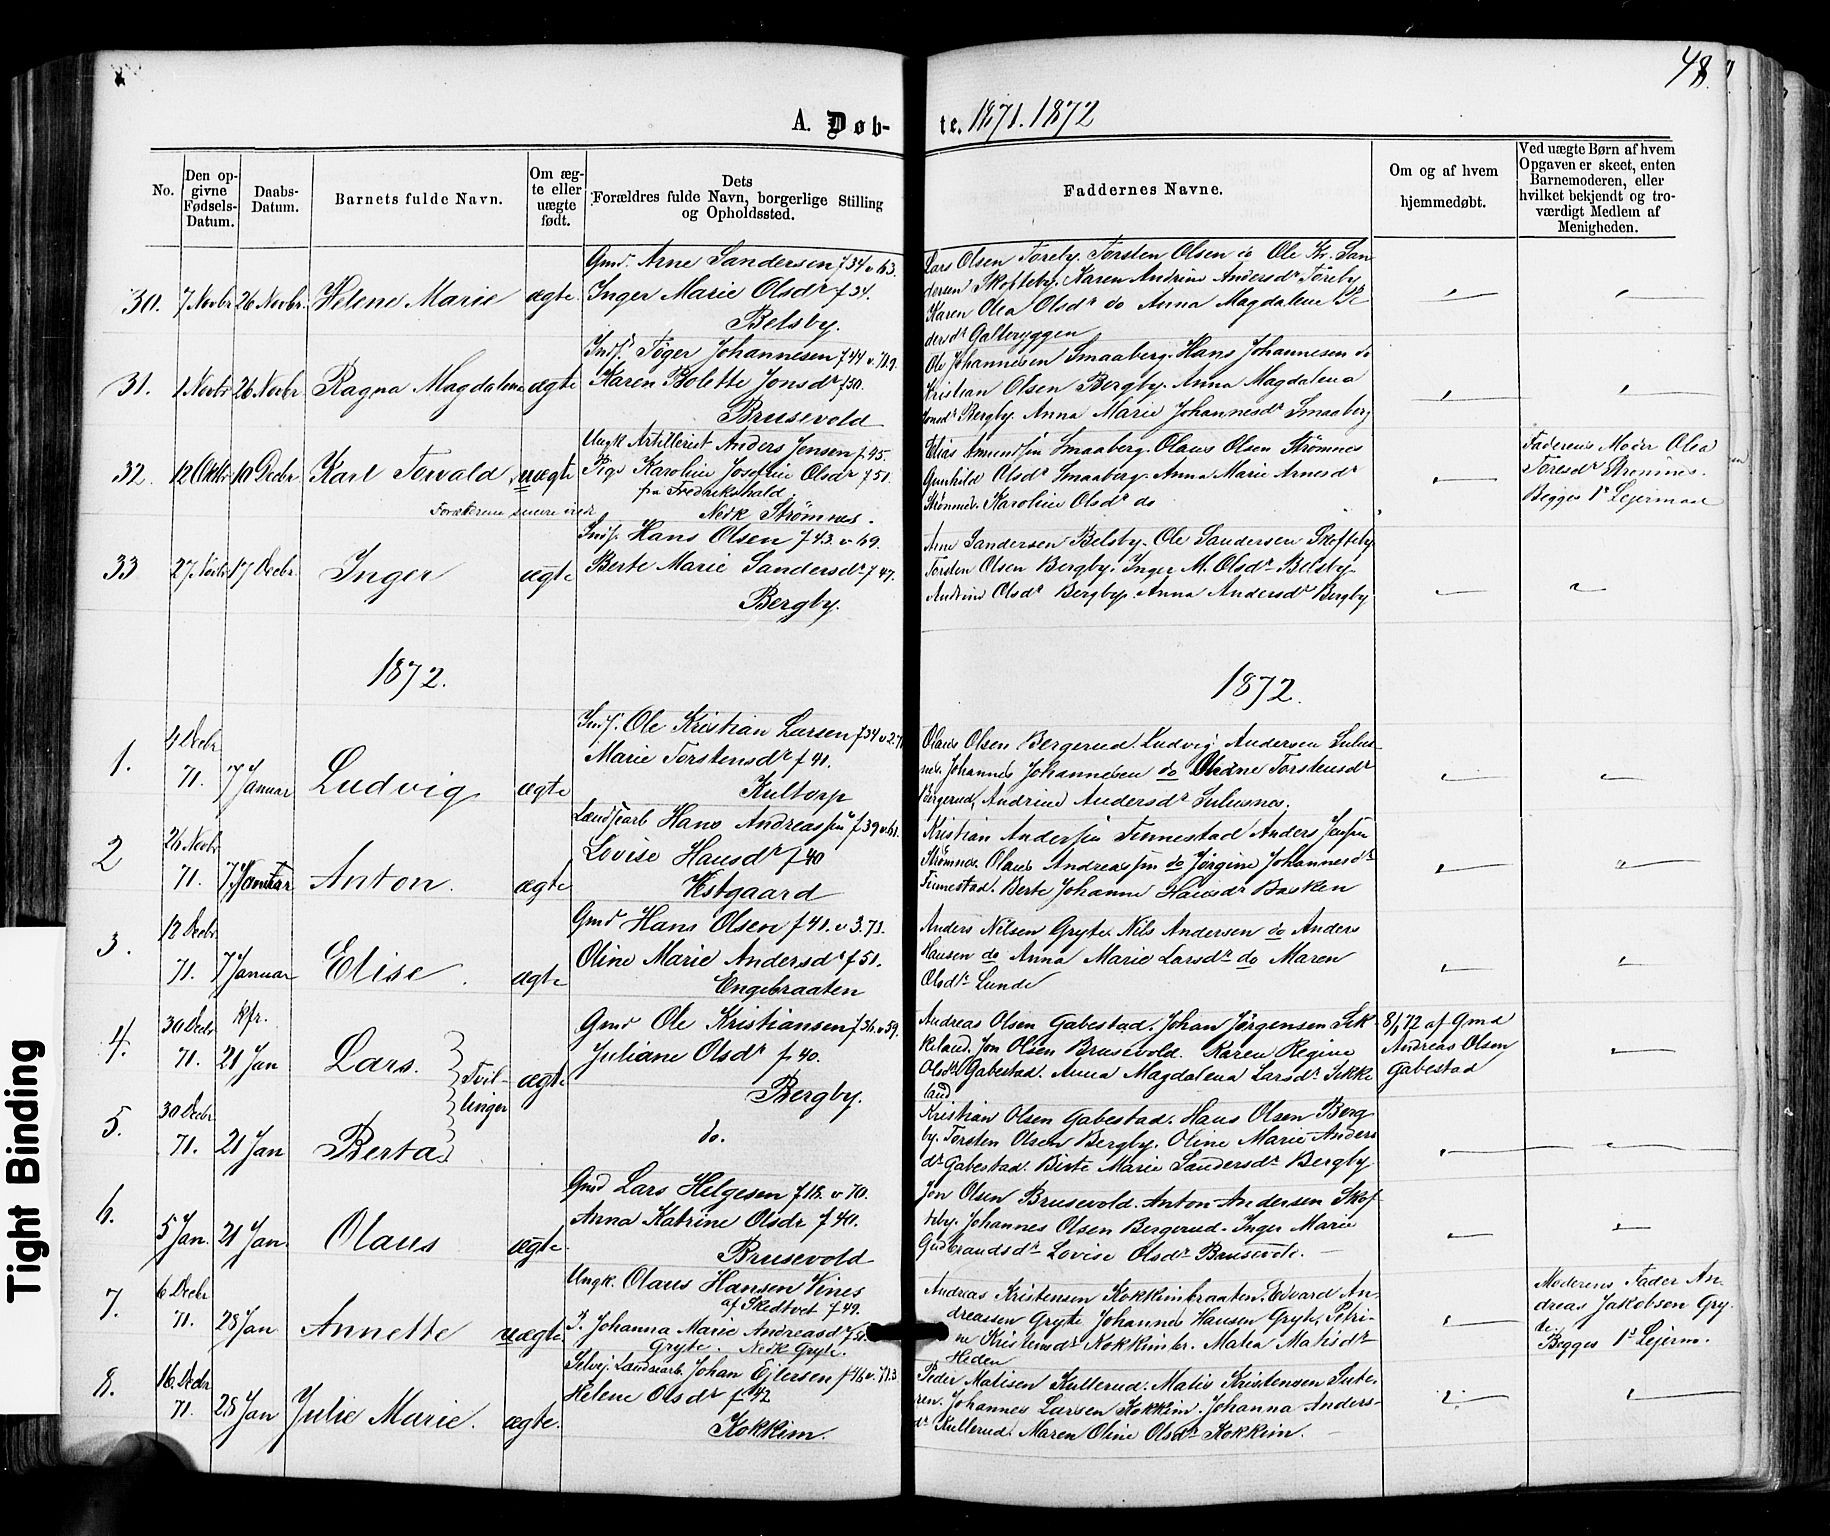 48.
A. Døb-
te. 1871. 1872
No.
Den op-
givne
Fødsels-
Datum.
Daabs-
Datum.
Barnets fulde Navn.
Om æg-
te eller
uægte
født.
Dets
Forældres fulde Navn, borgerlige Stilling
og Opholdssted.
Faddernes Navne.
Om og af hvem
hjemmedøbt.
Ved uægte Børn af hvem
Opgaven er skeet, enten
Barnemoderen, eller
hvilket bekjendt og tro-
værdigt Medlem af
Menigheden.
30. 7 Novbr 26 Novbr. Helene Marie ægte
Gmd. Arne Sandersen f 34 v 63.
Inger Marie Olsdr f 34.
Belsby.
Lars Olsen Toreby. Torsten Olsen do Ole Kr. San-
dersen Skofteby. Karen Andrine Andersdr Toreby
Karen Olea Olsdr do Anna Magdalena Pe
dersdr Galteryggen
31. 1 Novbr 26 Novbr Ragna Magdalena ægte
Inds. Tøger Johannesen f 44 v. 71.9.
Karen Bolette Jonsdr f 50.
Brusevold
Ole Johannesen Smaaberg. Hans Johannesen do
Kristian Olsen Bergby. Anna Magdalena
Jonsdr Bergby. Anna Marie Johannesdr Smaaberg
32. 12 Oktbr 10 Decbr Karl Torvald uægte
Forældrene senere viede
Ungk Artillerist Anders Jensen f 45
Pige Karoline Josefine Olsdr f 51.
fra Fredrikshald.
Nedk Strømnes.
Elias Amundsen Smaaberg. Olaus Olsen Strømnes
Gunhild Olsdr Smaaberg. Anna Marie Arnesdr
Strømnes. Karoline Olsdr do
Faderens Moder Olea
Toresdr Strømnes.
Begges 1s Lejermaal
33 27 Novbr 17 Decbr. Inger ægte
Inds. Hans Olsen f 43. v 69.
Berte Marie Sandersdr f 47.
Bergby.
Arne Sandersen Belsby. Ole Sandersen Skofteby
Torsten Olsen Bergby. Inger M. Olsdr Belsby.
Andrine Olsdr Bergby. Anna Andersdr Bergby
1872. 1872.
1. 4 Decbr 71. 7 Januar Ludvig ægte
Inds. Ole Kristian Larsen f 34 v 2.71
Marie Torstensdr f 41.
Kultorp
Olaus Olsen Bergerud. Ludvig Andersen Sulus-
nes. Johannes Johannesen do Oledne Torstensdr
Bergerud, Andrine Andersdr Sulusnes.
2 26 Novbr 71. 7 Januar Anton. ægte
Landsarb Hans Andreassen f 39 v 61.
Lovise Hansdr f 40
Vestgaard
Kristian Andersen Tinnestad Anders Jensen
Strømnes. Olaus Andreassen do Jørgine Johannesdr
Tinnestad. Berte Johanne Hansdr Bakken
3. 12 Decbr 71. 7 Januar Elise. ægte
Gmd Hans Olsen f 41. v 3.71.
Oline Marie Andersdr f 51.
Engebraaten
Anders Nilsen Gryte. Nils Andersen do Anders
Hansen do Anna Marie Larsdr do Maren
Olsdr Lunde
4. 30 Decbr 71. kfr. 21 Jan Lars. Tvil-
linger ægte
Gmd Ole Kristiansen f 36. v 59.
Juliane Olsdr f 40.
Bergby.
Andreas Olsen Gabestad. Johan Jørgensen Sik-
keland. Jon Olsen Brusevold. Karen Regine
Olsdr Gabestad. Anna Magdalena Larsdr Sikke
land
8/1 72 af Gmd
Andreas Olsen
Gabestad
5. 30 Decbr 71. 21 Jan Berta
do.
Kristian Olsen Gabestad. Hans Olsen Berg
by. Torsten Olsen Bergby. Oline Marie Anders
dr Gabestad. Birte Marie Sandersdr Bergby
6. 5 Jan. 21 Jan. Olaus ægte
Gmd Lars Helgesen f 18. v 70.
Anna Katrine Olsdr f 40.
Brusevold
Jon Olsen Brusevold. Anton Andersen Skof
teby. Johannes Olsen Bergerud. Inger Marie
Gudbrandsdr Lovise Olsdr Brusevold.
7. 6 Decbr 71. 28 Jan Annette uægte
Ungk. Olaus Hansen Vines
af Skedtvet f 49.
P. Johanna Marie Andreasdr f 51.
Gryte. Nedk Gryte.
Andreas Kristensen Kokkimbraaten. Edvard An-
dreassen Gryte Johannes Hansen Gryte, Petri-
ne Kristensdr Kokkimbr. Matea Matisdr
Heden
Moderens Fader An-
dreas Jakobsen Gry-
te.
Begges 1s Lejerm.
8. 16 Decbr 71. 28 Jan Julie Marie. ægte.
Selvej. Landsarb. Johan Ejlersen f 46 v. 71.3
Helene Olsdr f 42
Kokkim.
Peder Matisen Kullerud. Matis Kristensen Sute-
ren. Johannes Larsen Kokkim. Johanna Anders-
dr Kullerud. Maren Oline Olsdr Kokkim.
Tight Binding